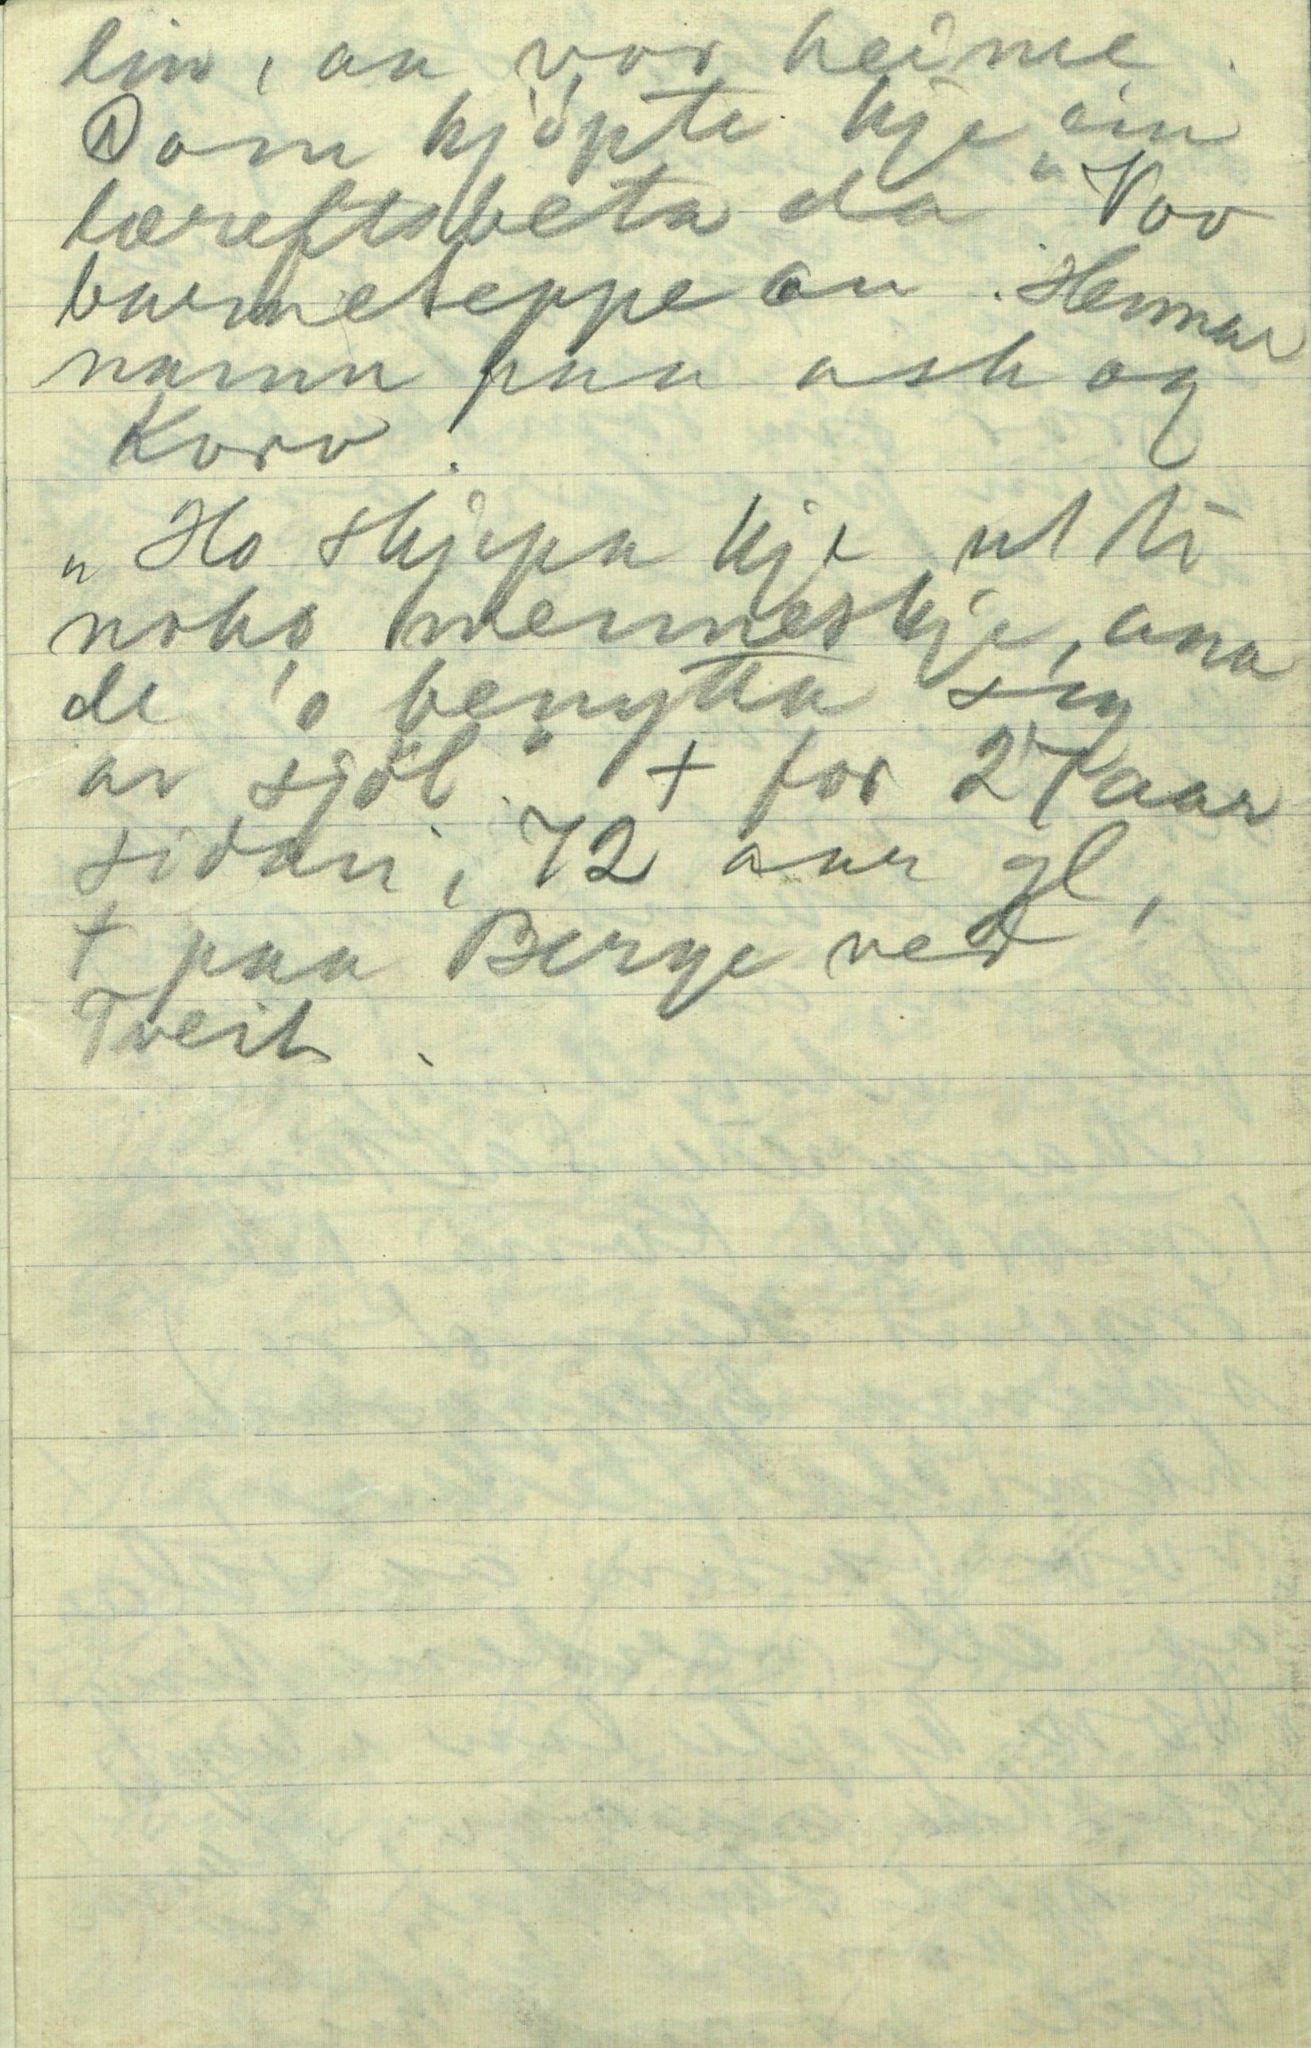 lin, an vor heime.
Dom kjöpte kje ein
lereftsbeta da". Vov
barneteppe an. Hennar
namn paa ask og
Korv.
"Ho skjepa kje ut ti
noko menneskje, ana
de 'o benytta sig
av sjöl" + for 27 aar
sidan, 72 aar gl,
+ paa Berge ved
Tveit.